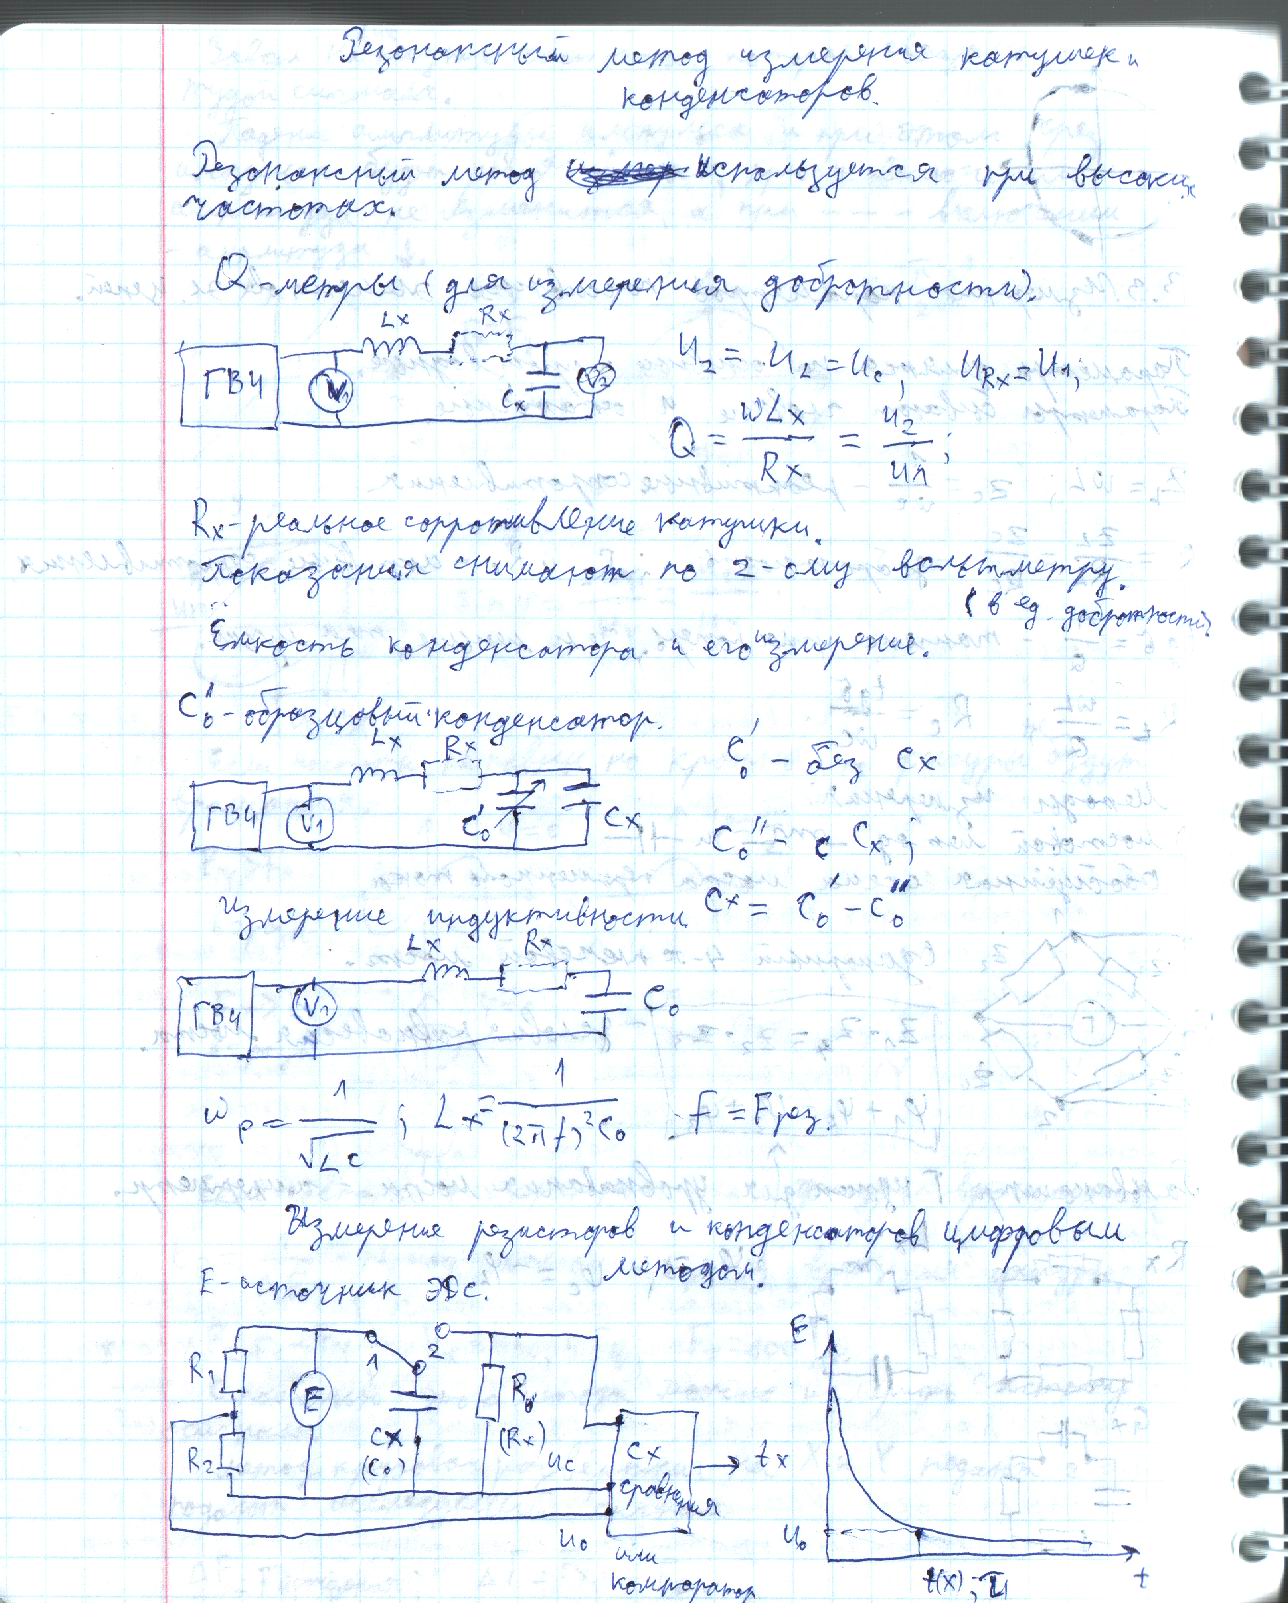 Резонансный метод измерения катушек и
конденсаторов.
Резонансный метод используется при высоких
частотах.
Q-метры (для измерения добротности).
Lx Rx
ГВЧ V1 Cx V2
U2 = UL = Uc; URx = U1;
Q = wLx / Rx = U2 / U1;
Rx - реальное сорротивление катушки.
Показания снимают по 2-ому вольтметру.
(в ед. добротности)
Ёмкость конденсатора и его измерение.
C0' - образцовый конденсатор.
Lx Rx
ГВЧ V1 C0' Cx
C0' - без Cx
C0'' - с Cx;
Cx = C0' - C0''
Измерение индуктивности
Lx Rx
ГВЧ V1 C0
wp = 1 / √LC ; Lx = 1 / (2πf)²C0 f = Fрез.
Измерение резисторов и конденсаторов цифровым
методом.
E - источник ЭДС.
R1 E 1 2 R0
R2 Cx (Rx)
(C0) Uc
U0
Cx
сравнения
или
компаратор
tx
E
U0
t(x); τ1 t